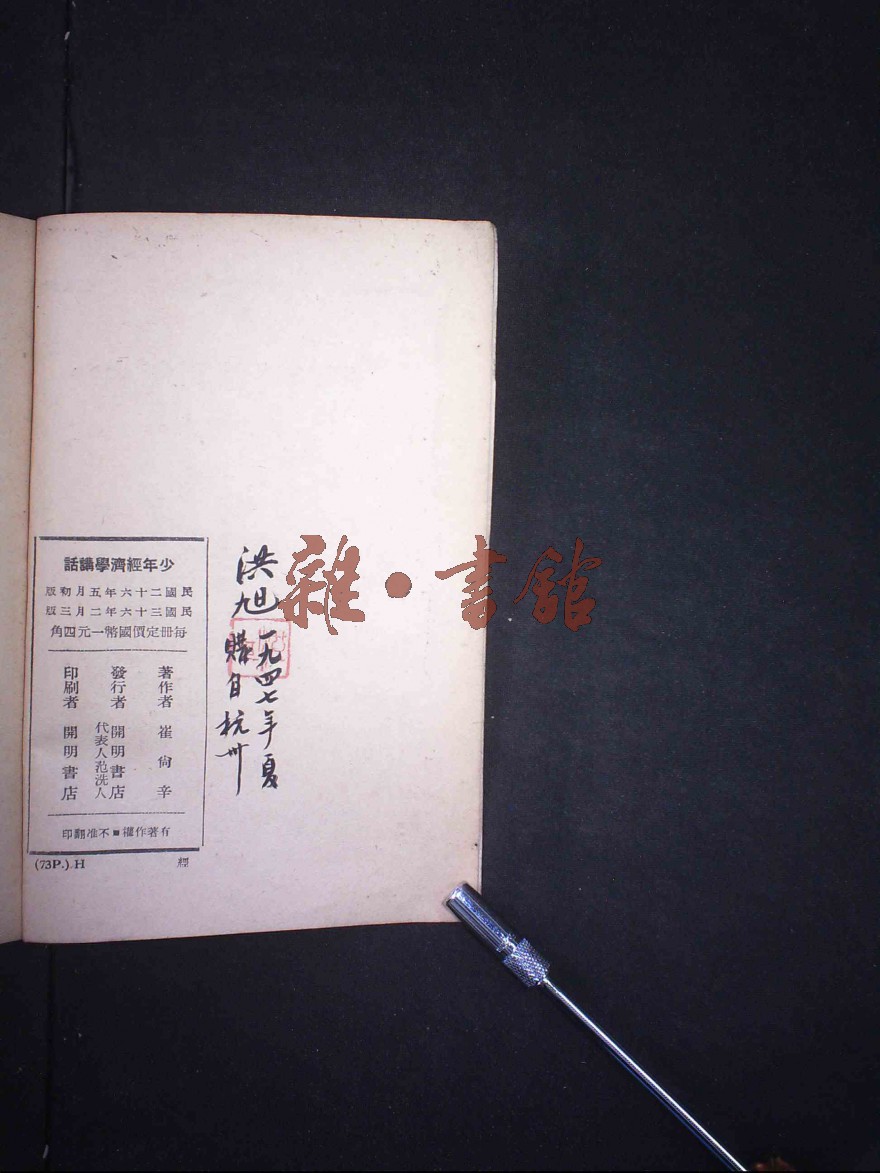 少年經濟學講話
民國二十六年五月初版
民國三十六年二月三版
每冊定價國幣一元四角
著作者 崔尙辛
發行者 開明書店
代表人范洗人
印刷者 開明書店
有著作權■不准翻印
(73P.) H
經
洪旭
一九四七年夏
購自杭州
雜·書館